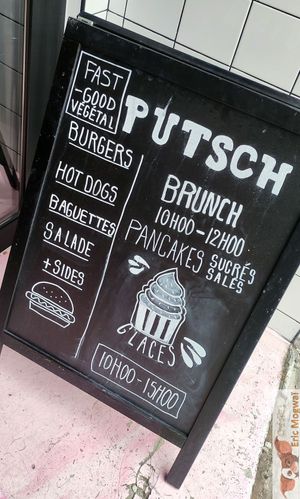 FAST
-GOOD
VÉGÉTAL
BURGERS
HOT DOGS
BAGUETTES
SALADE
+ SIDES
PUTSCH
BRUNCH
10H00-12H00
PANCAKES SUCRÉS
SALÉS
GLACES
10H00-15H00
Eric Mogwai